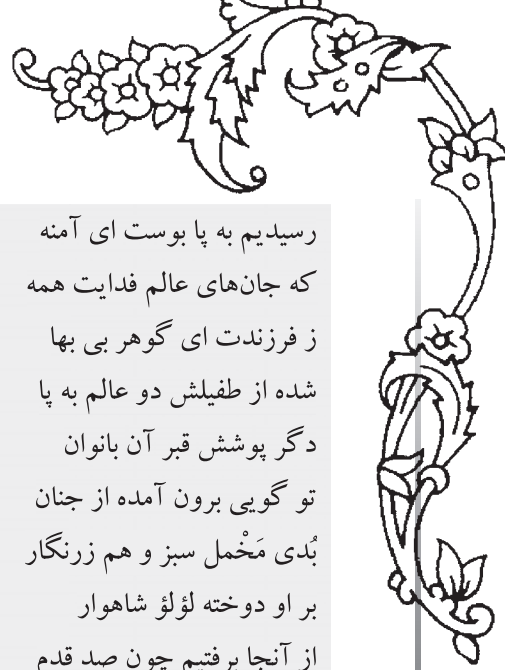 رسیدیم به پا بوست ای آمنه
که جان‌های عالم فدایت همه
ز فرزندت ای گوهر بی بها
شده از طفیلش دو عالم به پا
دگر پوشش قبر آن بانوان
تو گویی برون آمده از جنان
بُدی مَخْمل سبز و هم زرنگار
بر او دوخته لؤلؤ شاهوار
از آنجا برفتیم چون صد قدم